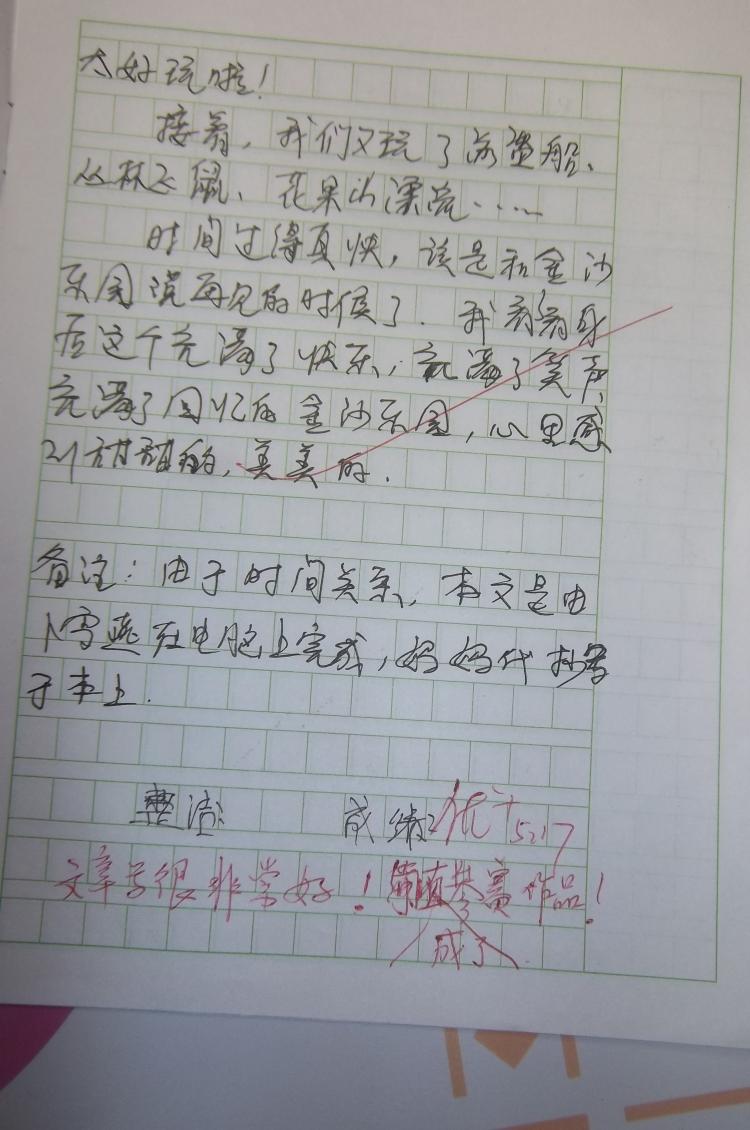 太好玩啦！
接着，我们又玩了海盗船、
丛林飞鼠、花果山漂流……
时间过得真快，该是和金沙
乐园说再见的时候了．我看着身
后这个充满了快乐，充满了笑声，
充满了回忆的金沙乐园，心里感
到甜甜的，美美的．
备注：由于时间关系，本文是由
卜雪燕在电脑上完成，妈妈代抄写
于本上．
整洁：　成绩：优＋ 5.17
文章写很非常好！参赛作品！
成了